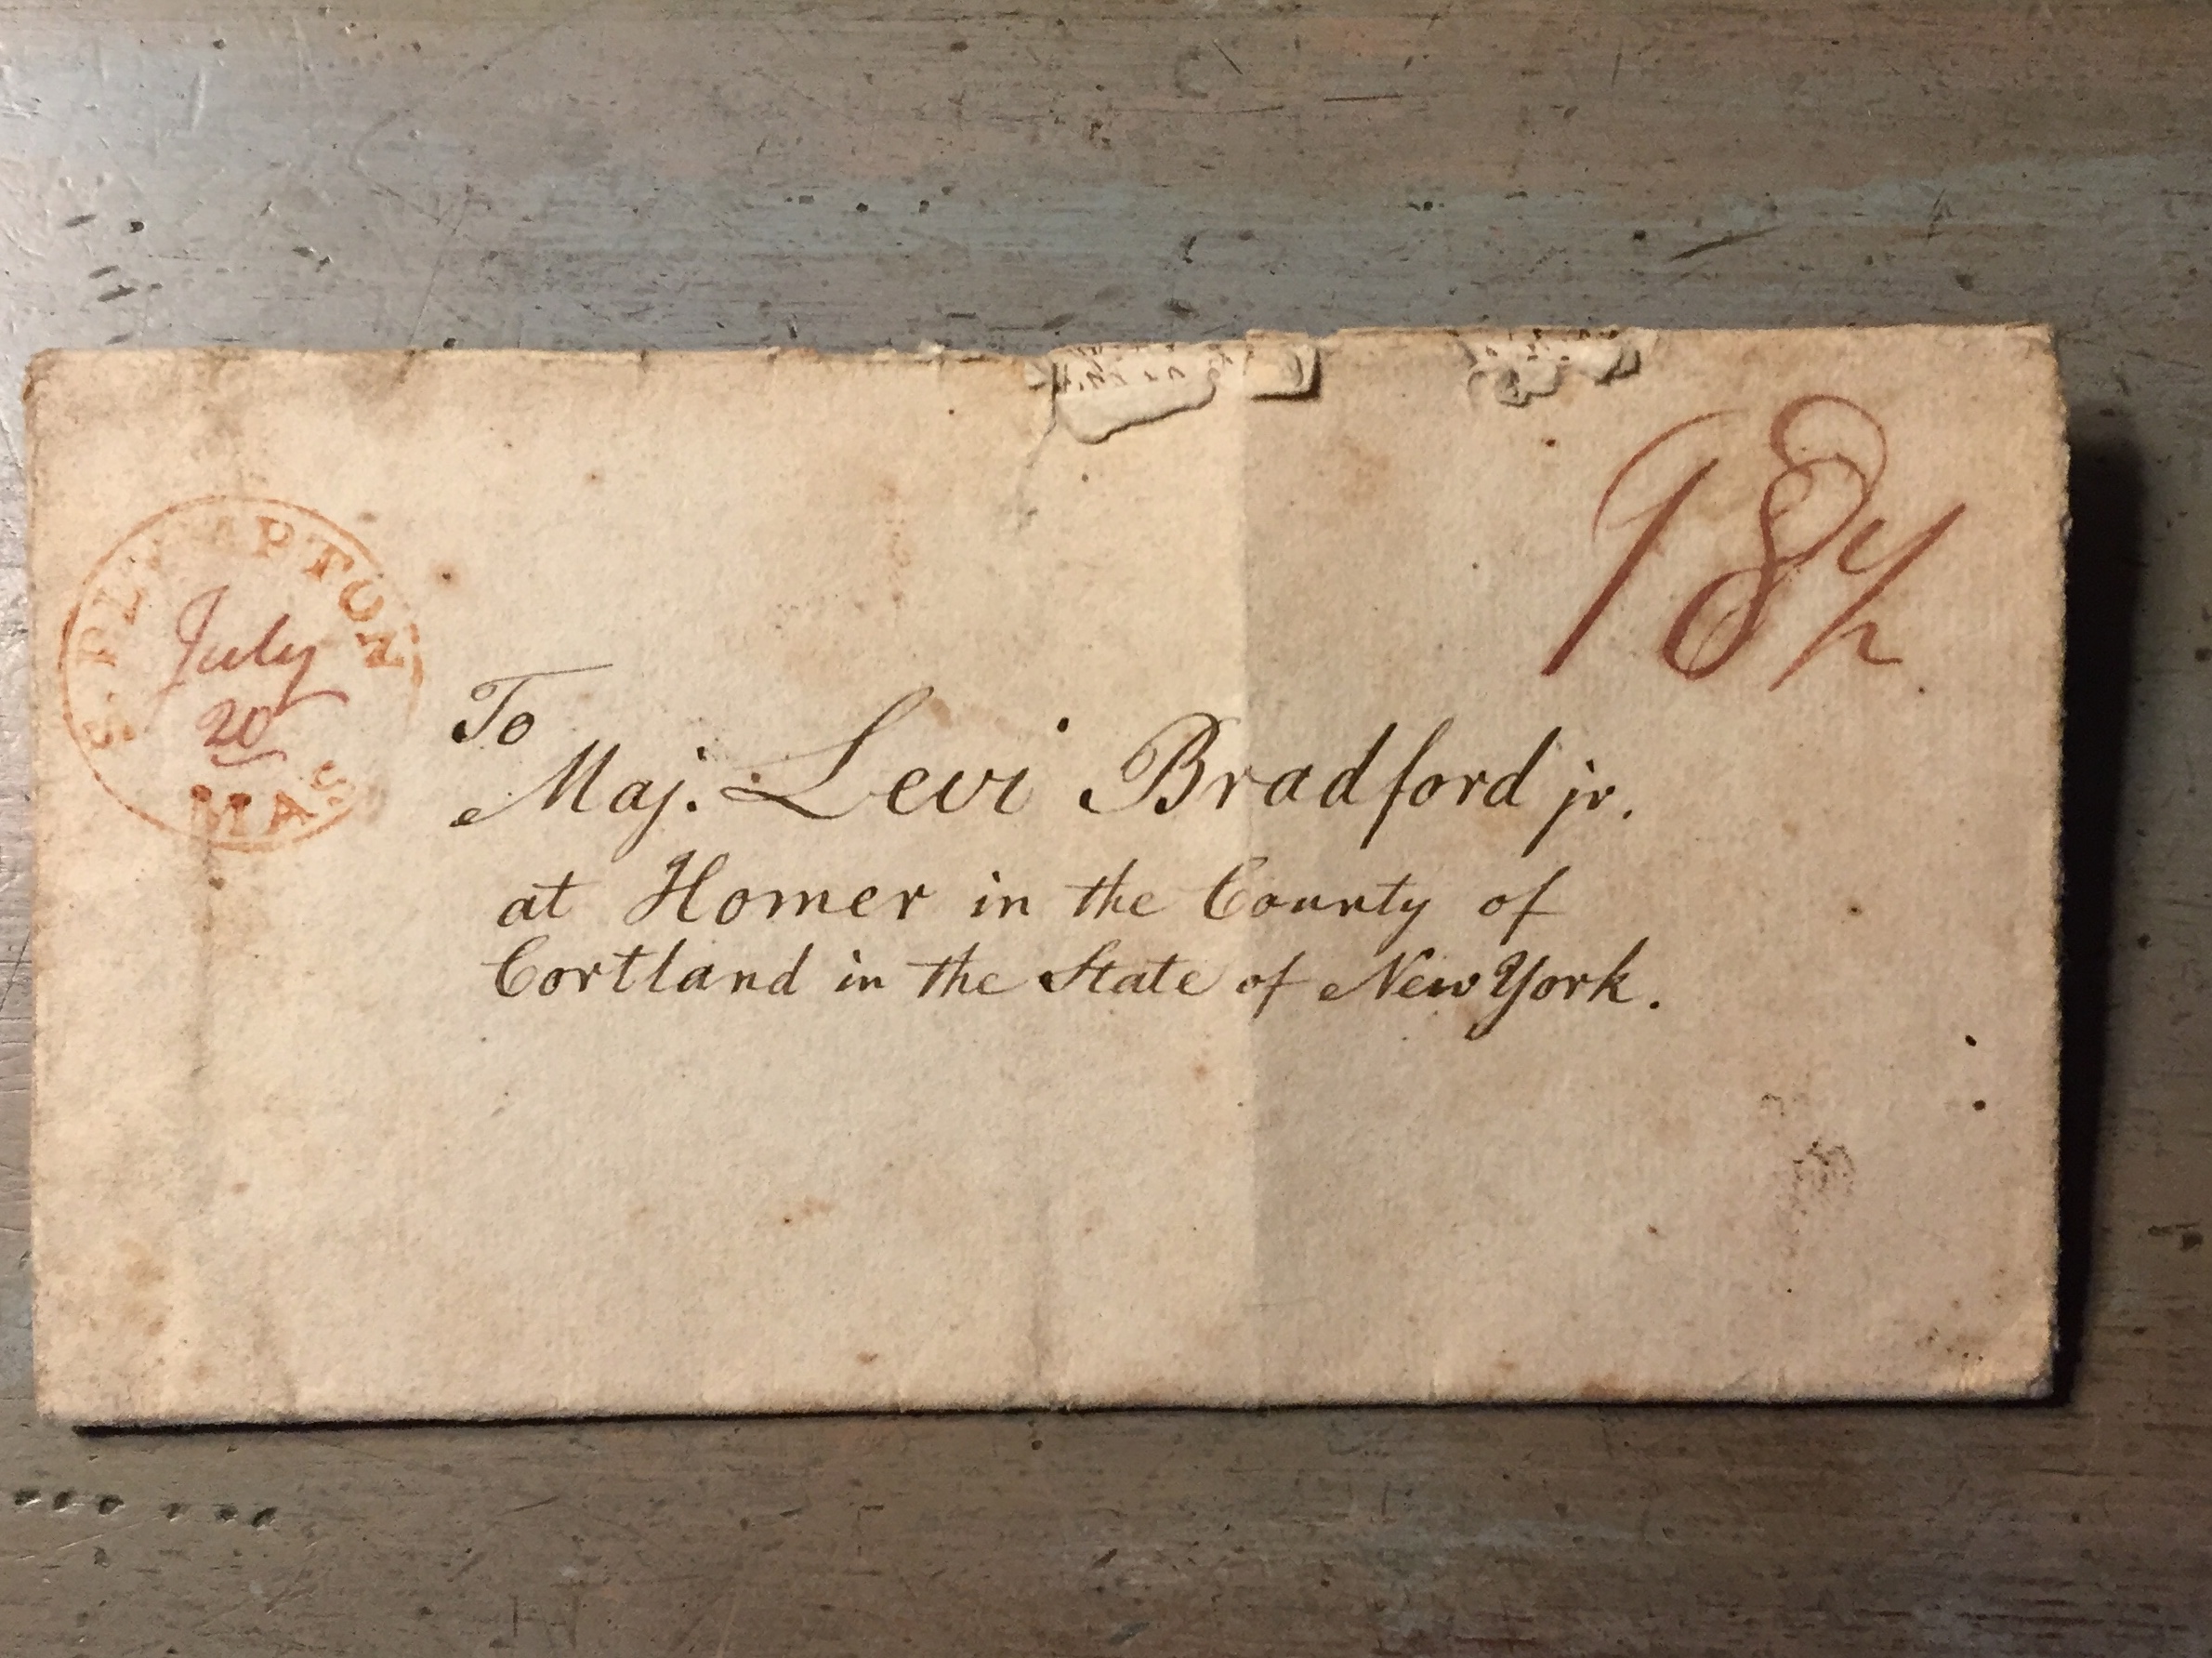 S. PLYMPTON
July
20
MAS
18½
To
Maj. Levi Bradford jr.
at Homer in the County of
Cortland in the State of New York.